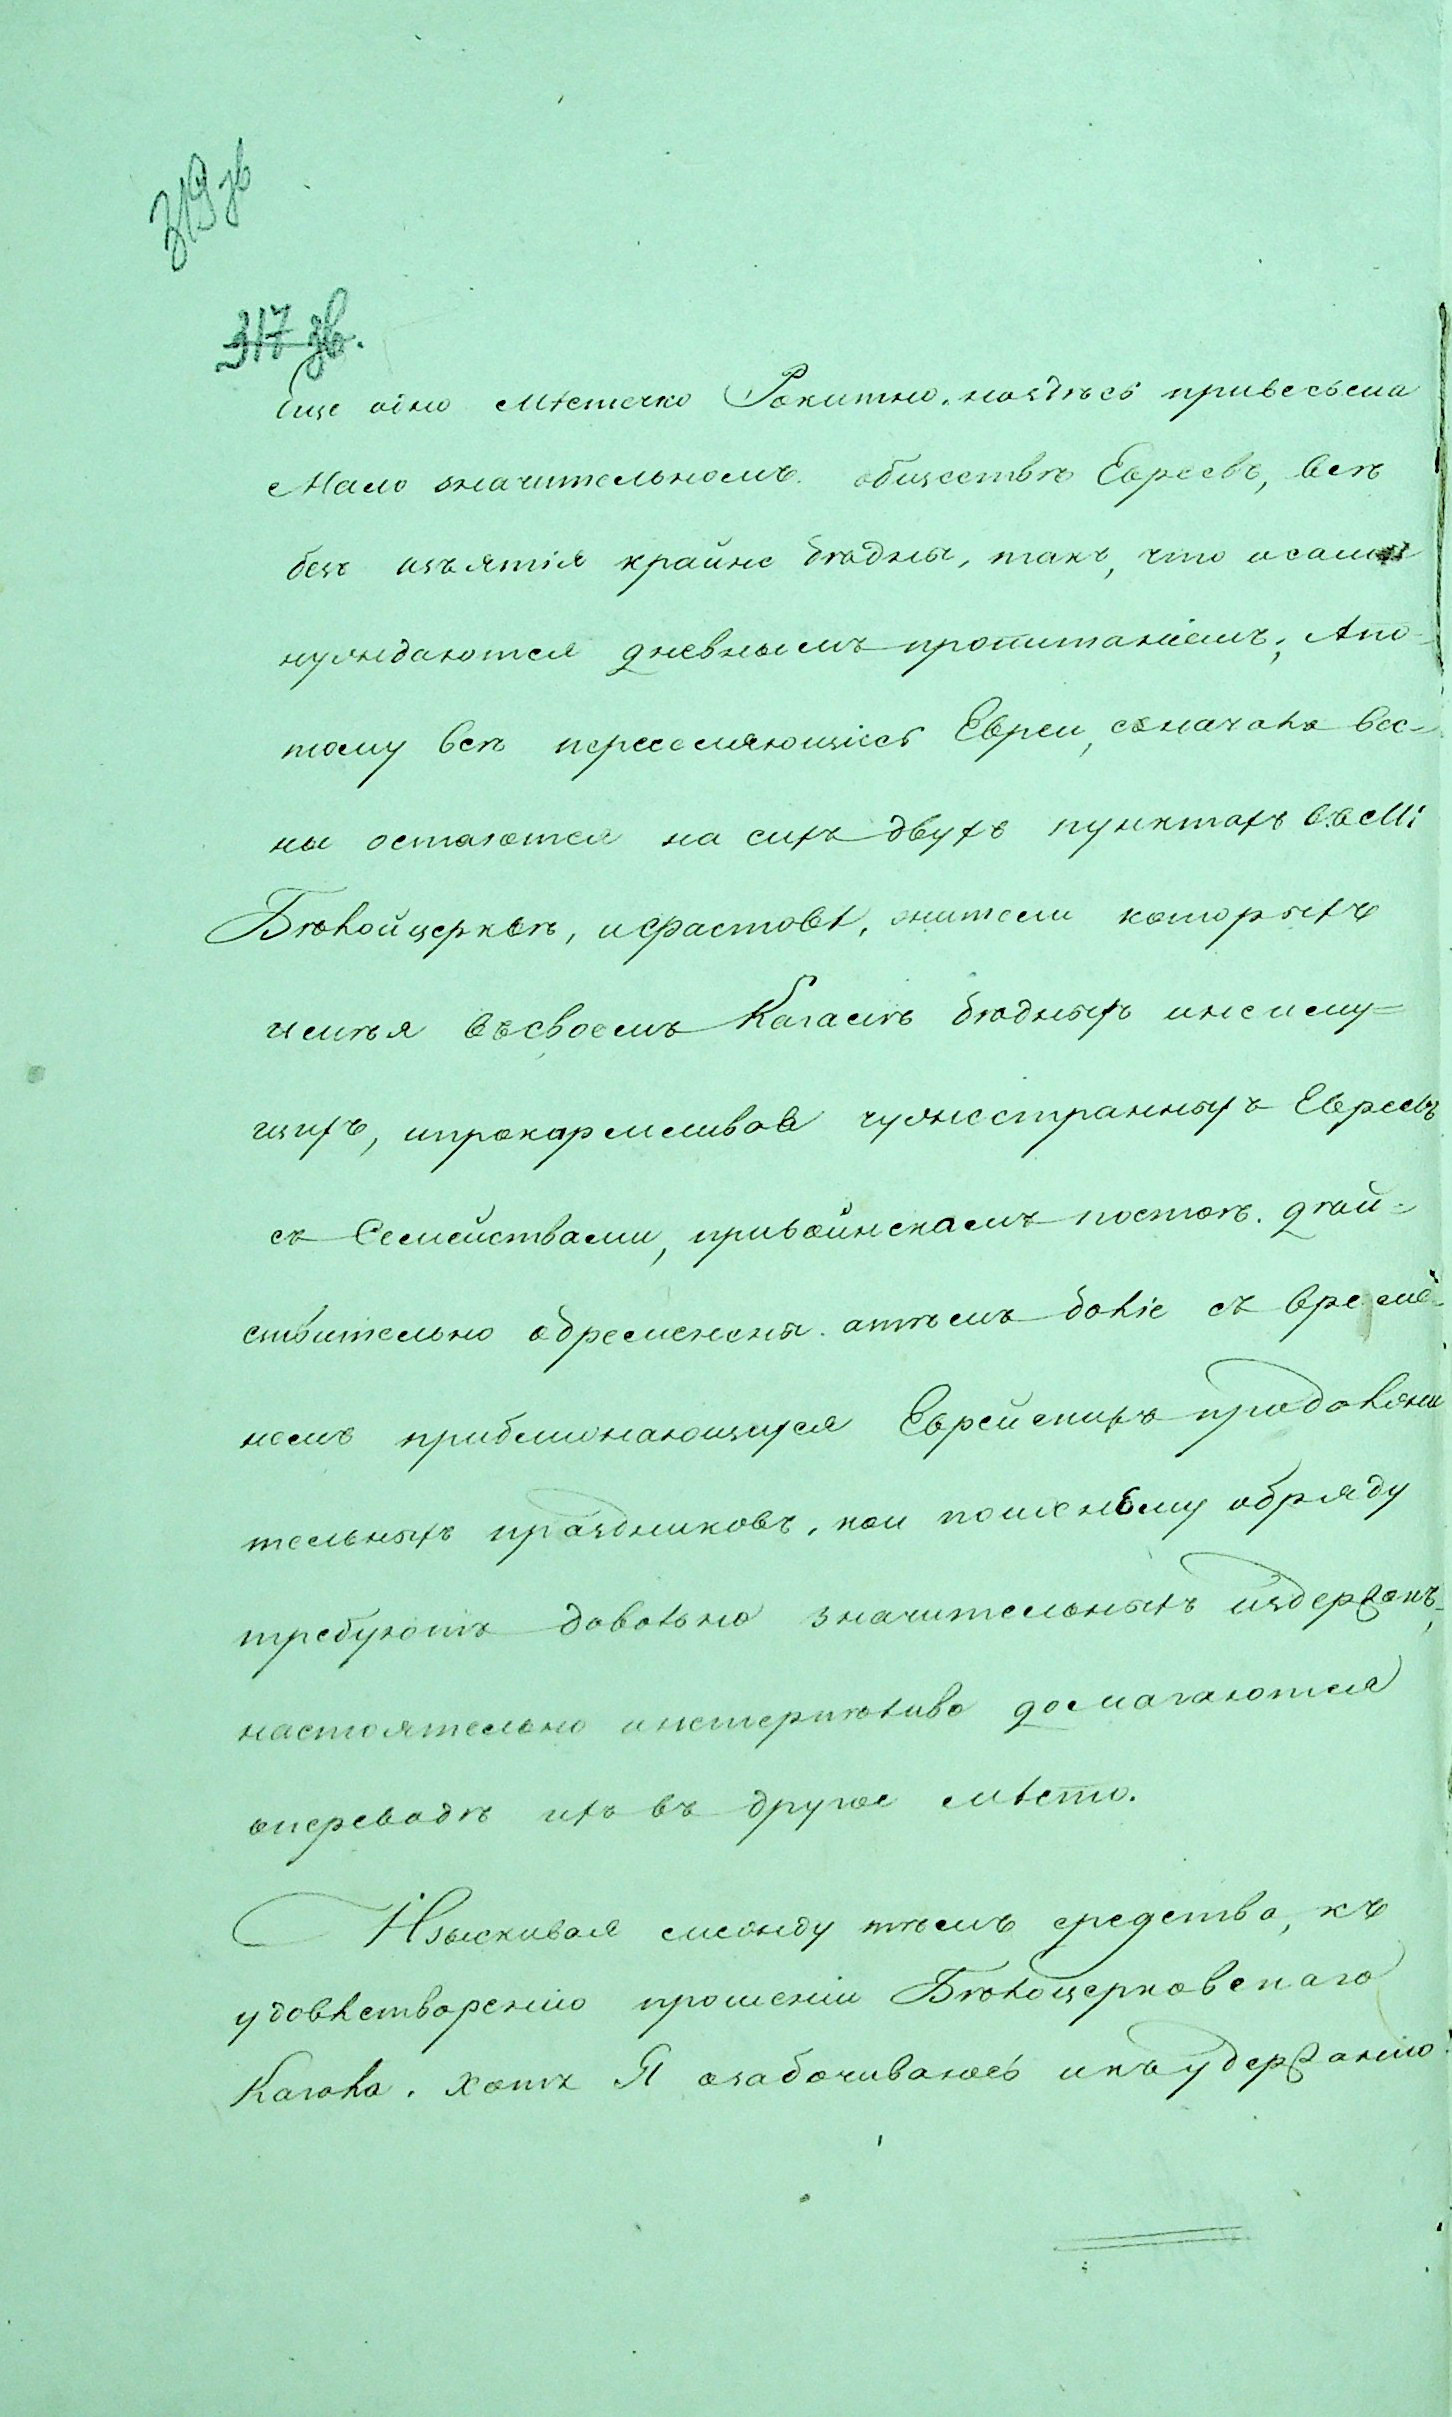 319 зв
317 зв.
Еще одно Мѣстечко Рокитно. ноздѣсь привесьема
Мало значительномъ обществѣ Евреевъ, всѣ
безъ изъятія крайне бѣдны, такъ, что исами
нуждаются дневнымъ пропитаніемъ; Апо-
тому всѣ переселяющіесь Евреи, сначала вес-
ны остаются на сихъ двухъ пунктахъ въ М:
Бѣлойцерквѣ, иФастовѣ, жители которыхъ
имѣя въсвоемъ Кагалѣ бѣдныхъ инеиму-
щихъ, ипрокармливая чужестранныхъ Евреевъ
съ Семействами, привоинскамъ постоѣ. дѣй-
ствительно обременены. атѣмъ болѣе съ време-
немъ приближающихся Еврейскихъ продолжи
тельныхъ праздниковъ, кои поихному обряду
требуютъ довольно значительныхъ издержокъ,
настоятельно инетерпѣливо домагаются
опереводѣ ихъ въ другое мѣсто.
Изыскивая между тѣмъ средства, къ
удовлетворенію прошеніи Бѣлоцерковскаго
Кагала. хотя Я озабочиваюсь икъудержанію